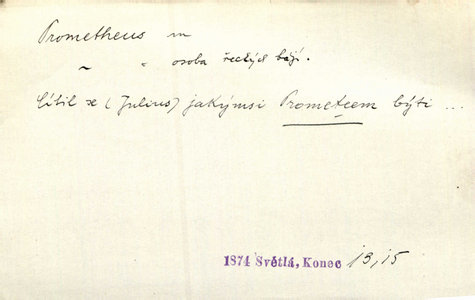 Prometheus m
~ " osoba řeckých bájí.
Cítil se (Julius) jakýmsi Prometeem býti ...
1874 Světlá, Konec 13, 15